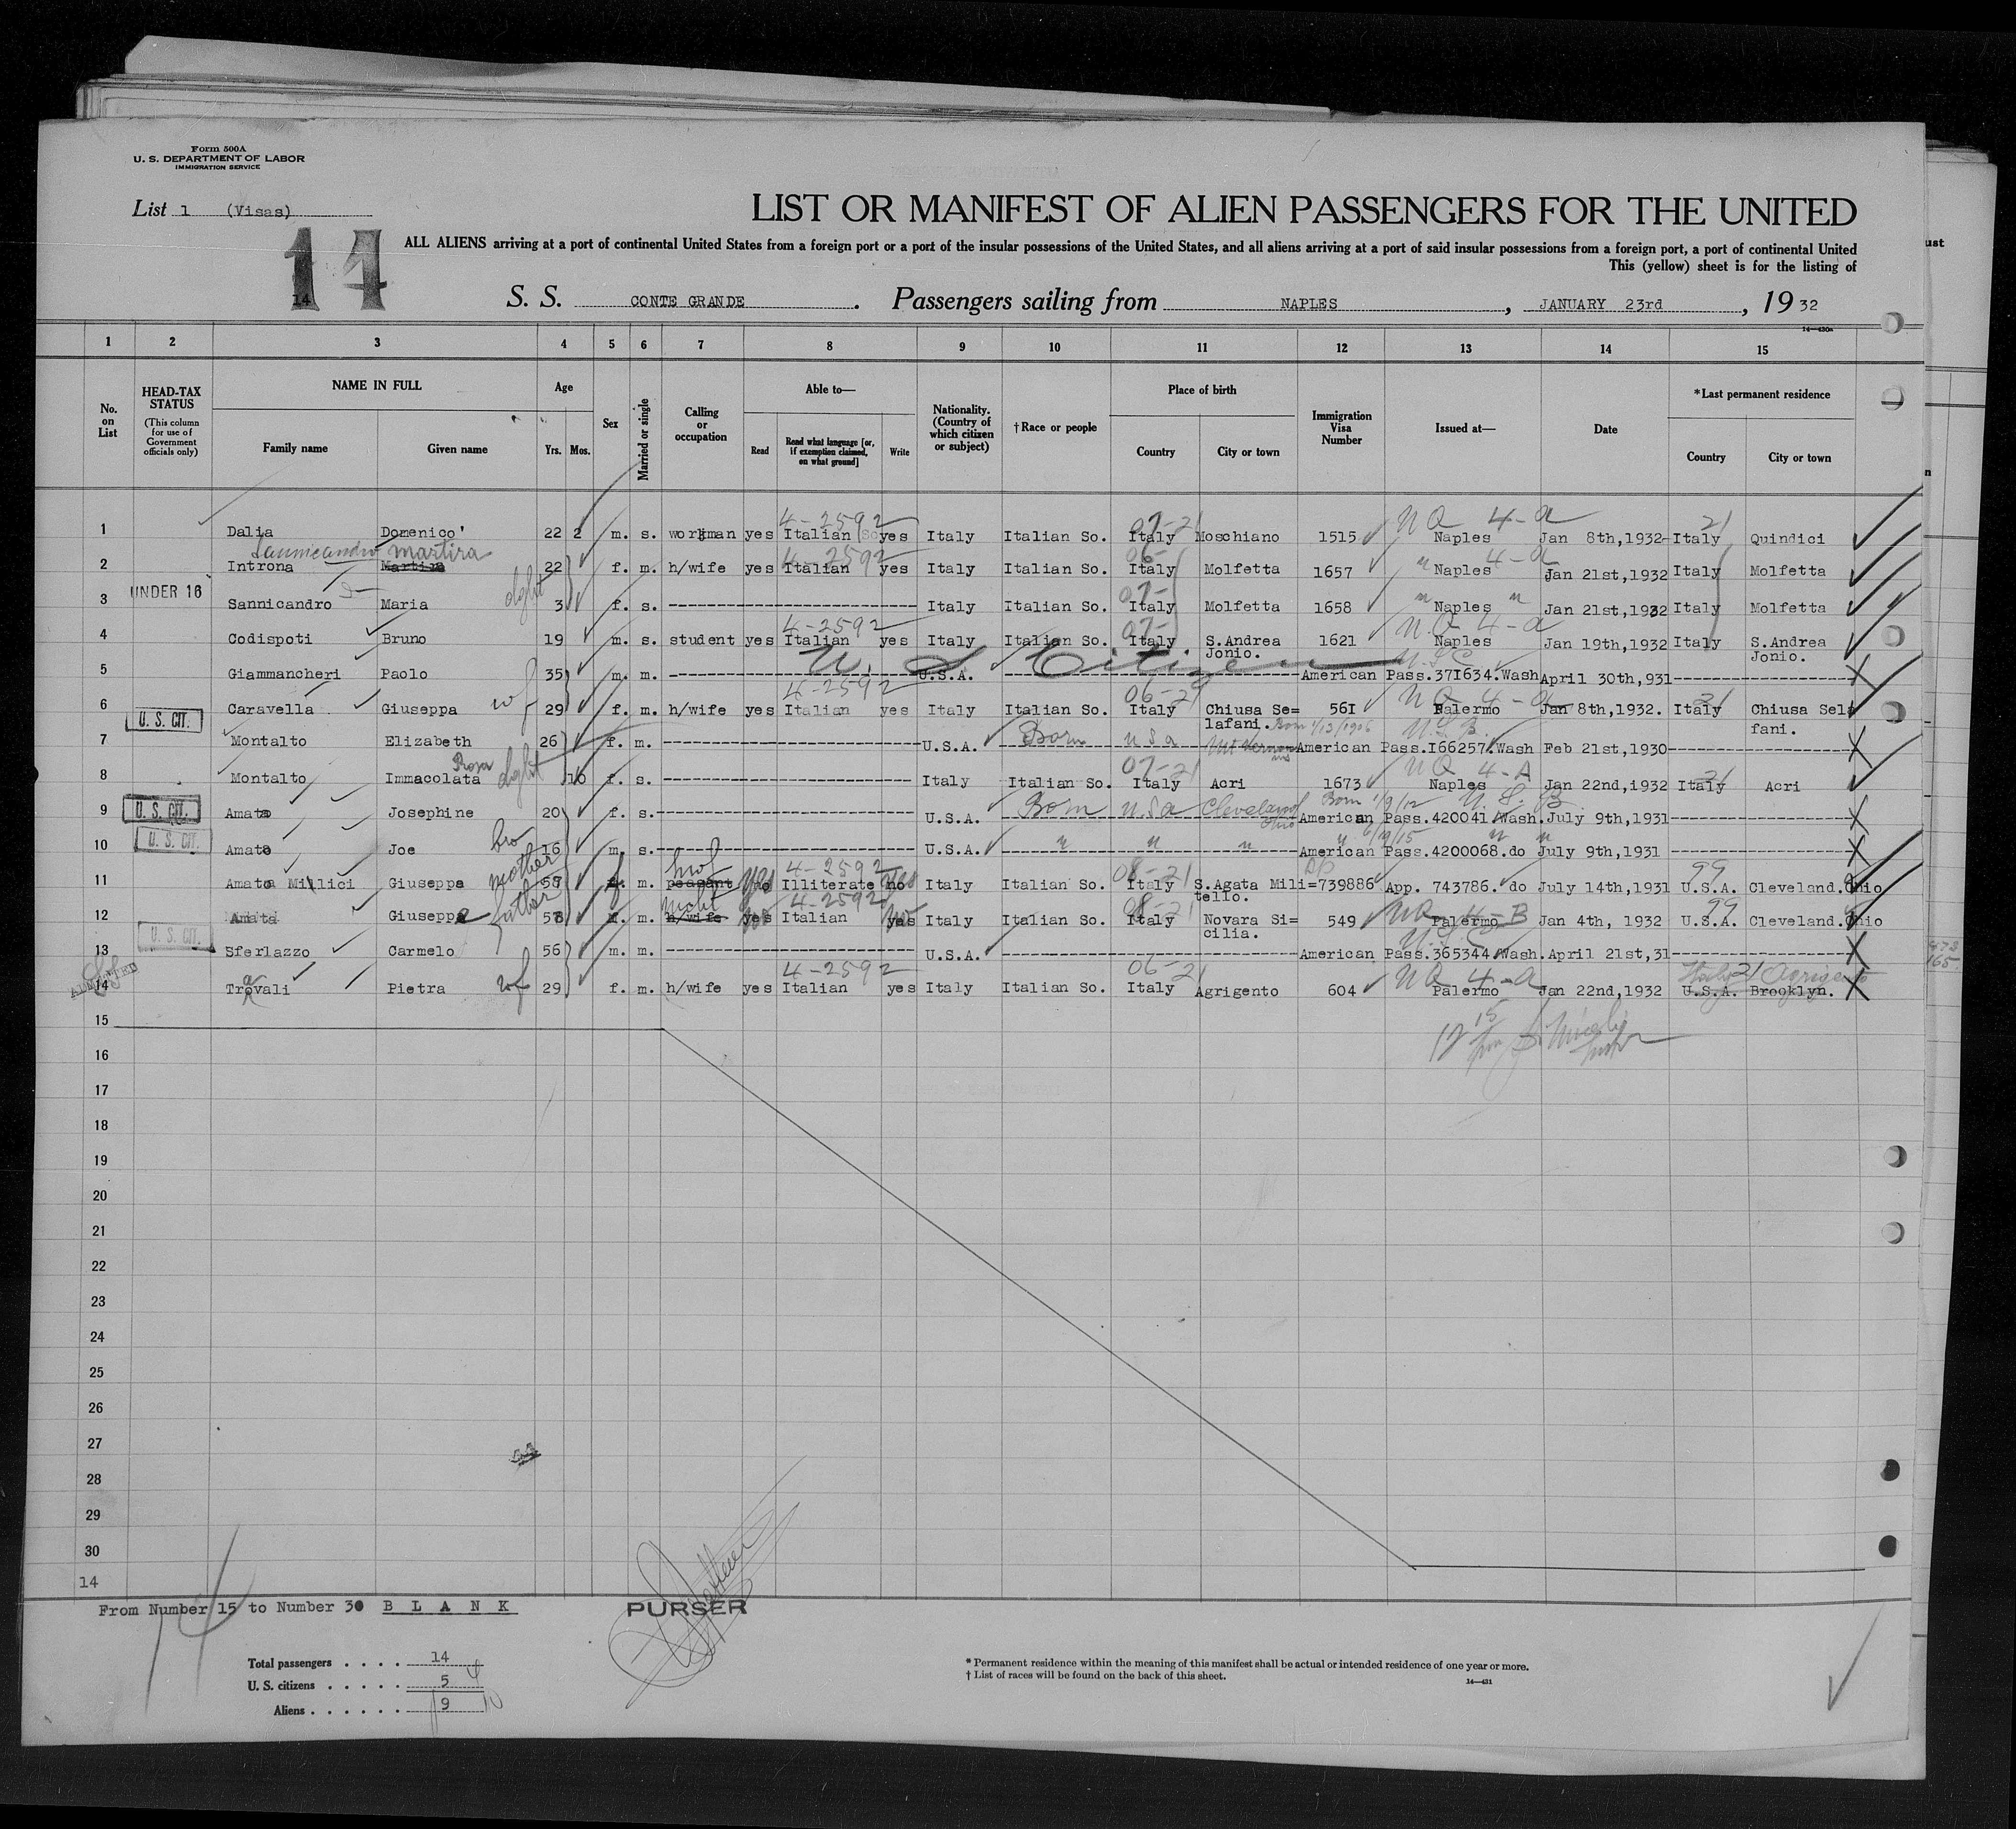 Form 500A
U. S. DEPARTMENT OF LABOR
IMMIGRATION SERVICE
List 1 (Visas)
14
14
LIST OR MANIFEST OF ALIEN PASSENGERS FOR THE UNITED
ALL ALIENS arriving at a port of continental United States from a foreign port or a port of the insular possessions of the United States, and all aliens arriving at a port of said insular possessions from a foreign port, a port of continental United
This (yellow) sheet is for the listing of
S. S. CONTE GRANDE. Passengers sailing from NAPLES, JANUARY 23rd, 1932
14—430a
1 2 3 4 5 6 7 8 9 10 11 12 13 14 15
No. on List
HEAD-TAX STATUS
(This column for use of Government officials only)
NAME IN FULL
Family name Given name
Age
Yrs. Mos.
Sex
Married or single
Calling or occupation
Able to—
Read Read what language [or, if exemption claimed, on what ground] Write
Nationality. (Country of which citizen or subject)
†Race or people
Place of birth
Country City or town
Immigration Visa Number
Issued at—
Date
*Last permanent residence
Country City or town
4-2592 07-21 NQ 4-a 21
1 Dalia Domenico' 22 2 m. s. workman yes Italian yes Italy Italian So. Italy Moschiano 1515 Naples Jan 8th,1932 Italy Quindici
Sannicandro Martira 4-2592 06- 4-a
2 Introna Martira 22 f. m. h/wife yes Italian yes Italy Italian So. Italy Molfetta 1657 " Naples Jan 21st,1932 Italy Molfetta
UNDER 16 dght 07-
3 Sannicandro Maria 3 f. s. Italy Italian So. Italy Molfetta 1658 " Naples " Jan 21st,1932 Italy Molfetta
4-2592 07- NQ 4-a
4 Codispoti Bruno 19 m. s. student yes Italian yes Italy Italian So. Italy S.Andrea Jonio. 1621 Naples Jan 19th,1932 Italy S.Andrea Jonio.
U. S Citizen U S C
5 Giammancheri Paolo 35 m. m. U.S.A. American Pass.371634.Wash April 30th,931
wf 4-2592 06-21 NQ 4-a 21
6 Caravella Giuseppa 29 f. m. h/wife yes Italian yes Italy Italian So. Italy Chiusa Se=lafani. 561 Palermo Jan 8th,1932. Italy Chiusa Selafani.
U. S. CIT. Born USA Mt Vernon Born 1/13/1906 U.S.B.
7 Montalto Elizabeth 26 f. m. U.S.A. American Pass.I66257.Wash Feb 21st,1930
Rosa dght 07-21 NQ 4-A 21
8 Montalto Immacolata 10 f. s. Italy Italian So. Italy Acri 1673 Naples Jan 22nd,1932 Italy Acri
U. S. CIT. Born USA Cleveland Ohio Born 1/9/12 U.S.B.
9 Amato Josephine 20 f. s. U.S.A. American Pass.420041.Wash.July 9th,1931
U. S. CIT. bro " " " " 6/19/15 " "
10 Amato Joe 16 m. s. U.S.A. American Pass.4200068.do July 9th,1931
mother hwf yes 4-2592 yes 08-21 99
11 Amato Millici Giuseppa 59 f. m. peasant no Illiterate no Italy Italian So. Italy S.Agata Mili=tello. 739886 App. 743786. do July 14th,1931 U.S.A. Cleveland.Ohio
father 4-2592 08-21 NQ 4-B 99
12 Amata Giuseppe 58 m. m. h/wife yes Italian yes Italy Italian So. Italy Novara Si=cilia. 549 Palermo Jan 4th, 1932 U.S.A. Cleveland.Ohio
U. S. CIT. U.S.C
13 Sferlazzo Carmelo 56 m. m. U.S.A. American Pass.365344.Wash.April 21st,31
ADMITTED a wf 4-2592 06-21 NQ 4-a Italy 21 Agrigento
14 Trovali Pietra 29 f. m. h/wife yes Italian yes Italy Italian So. Italy Agrigento 604 Palermo Jan 22nd,1932 U.S.A. Brooklyn.
15
16
17
18
19
20
21
22
23
24
25
26
27
28
29
30
14
From Number 15 to Number 30 B L A N K
PURSER
14
Total passengers . . . . 14
U. S. citizens . . . . . 5 4
Aliens . . . . . . 9 10
* Permanent residence within the meaning of this manifest shall be actual or intended residence of one year or more.
† List of races will be found on the back of this sheet.
14—431